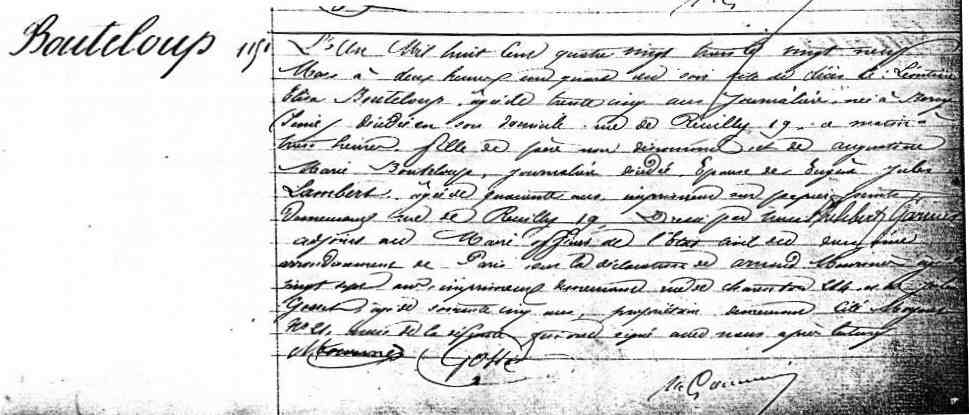 Bouteloup 1151
L'An Mil huit cent quatre vingt trois le vingt neuf
Mars à deux heures un quart du soir acte de décès de Léontine
Elisa Bouteloup, âgée de trente cinq ans journalière, née à
décédée en son domicile rue de Reuilly 19, ce matin à
trois heures. fille de père non dénommé et de Augustine
Marie Bouteloup, journalière décédée, Epouse de Eugène Jules
Lambert, âgé de quarante ans, imprimeur sur papiers peints
demeurant rue de Reuilly 19. Dressé par nous Philibert Garnier
adjoint au Maire officier de l'état civil du douzième
arrondissement de Paris sur la déclaration de Arnaud
vingt sept ans, imprimeur demeurant rue de Charenton 214 et de Jules
Gosset âgé de soixante cinq ans, propriétaire demeurant Cité Moynet
No amis de la défunte qui ont signé avec nous après lecture